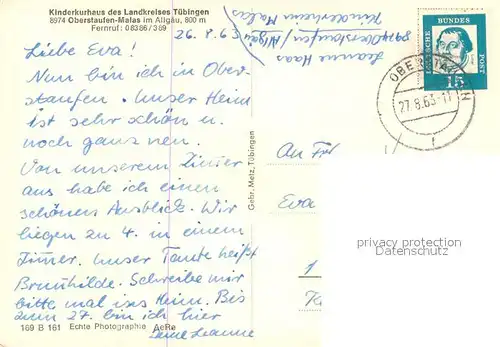 Kinderkurhaus des Landkreises Tübingen
8974 Oberstaufen-Malas im Allgäu, 800 m
Fernruf: 08386/369
26.8.63
Jeanne Haas
8974 Oberstaufen/Allgäu
Kinderheim Malas
Liebe Eva!
Nun bin ich in Ober-
staufen. Unser Heim
ist sehr schön u.
noch ganz neu.
Von unserem Zimer
aus habe ich einen
schönen Ausblick. Wir
liegen zu 4. in einem
Zimer. Unser Tante heißt
Brunhilde. Schreibe mir
bitte mal ins Heim. Bis
zum 27. bin ich hier
Deine Jeanne
169 B 161 Echte Photographie AeRa
Gebr. Metz, Tübingen
DEUTSCHE BUNDES POST
15
OBERSTAUFEN
27.8.63-17
f
An Frl
Eva
privacy protection
www.ansichtskartenversand.com